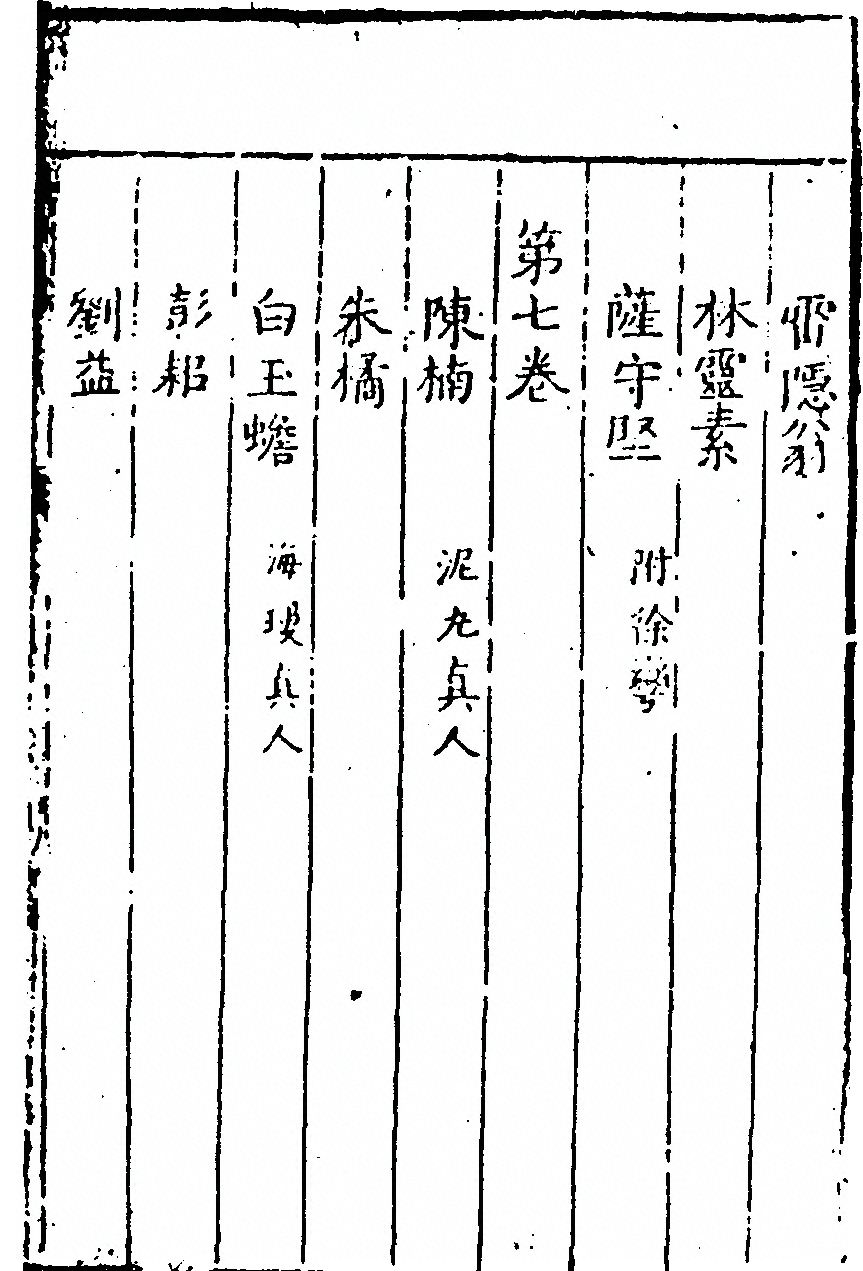 隱翁
林靈素
薩守堅 附徐彎
第七卷
陳楠 泥丸真人
朱橘
白玉蟾 海瓊真人
彭耜
劉益